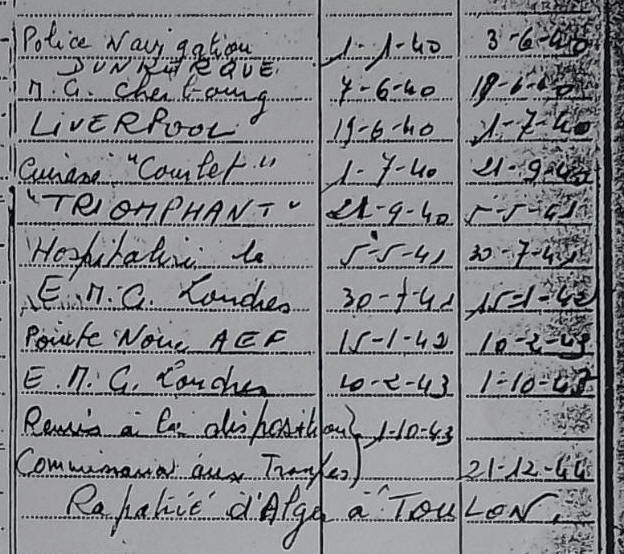 Police Navigation 1-1-40 3-6-40
DUNKERQUE
M.G. Cherbourg 7-6-40 19-6-40
LIVERPOOL 19-6-40 1-7-40
Cuirassé "Courbet" 1-7-40 21-9-40
"TRIOMPHANT" 21-9-40 5-5-41
Hospitalisé le 5-5-41 30-7-41
E.M.G. Londres 30-7-41 15-1-42
Pointe Noire AEF 15-1-42 10-2-43
E.M.G. Londres 10-2-43 1-10-43
Remis à la disposition 1-10-43
Commissariat aux 21-12-44
Rapatrié d'Alger à TOULON.